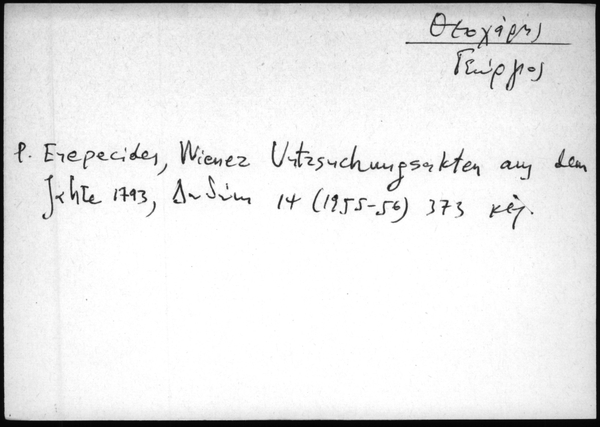 Θεοχάρης
Γεώργιος
P. Enepecides, Wiener Untersuchungsakten aus dem
Jahre 1793, 14 (1955-56) 373 κέξ.